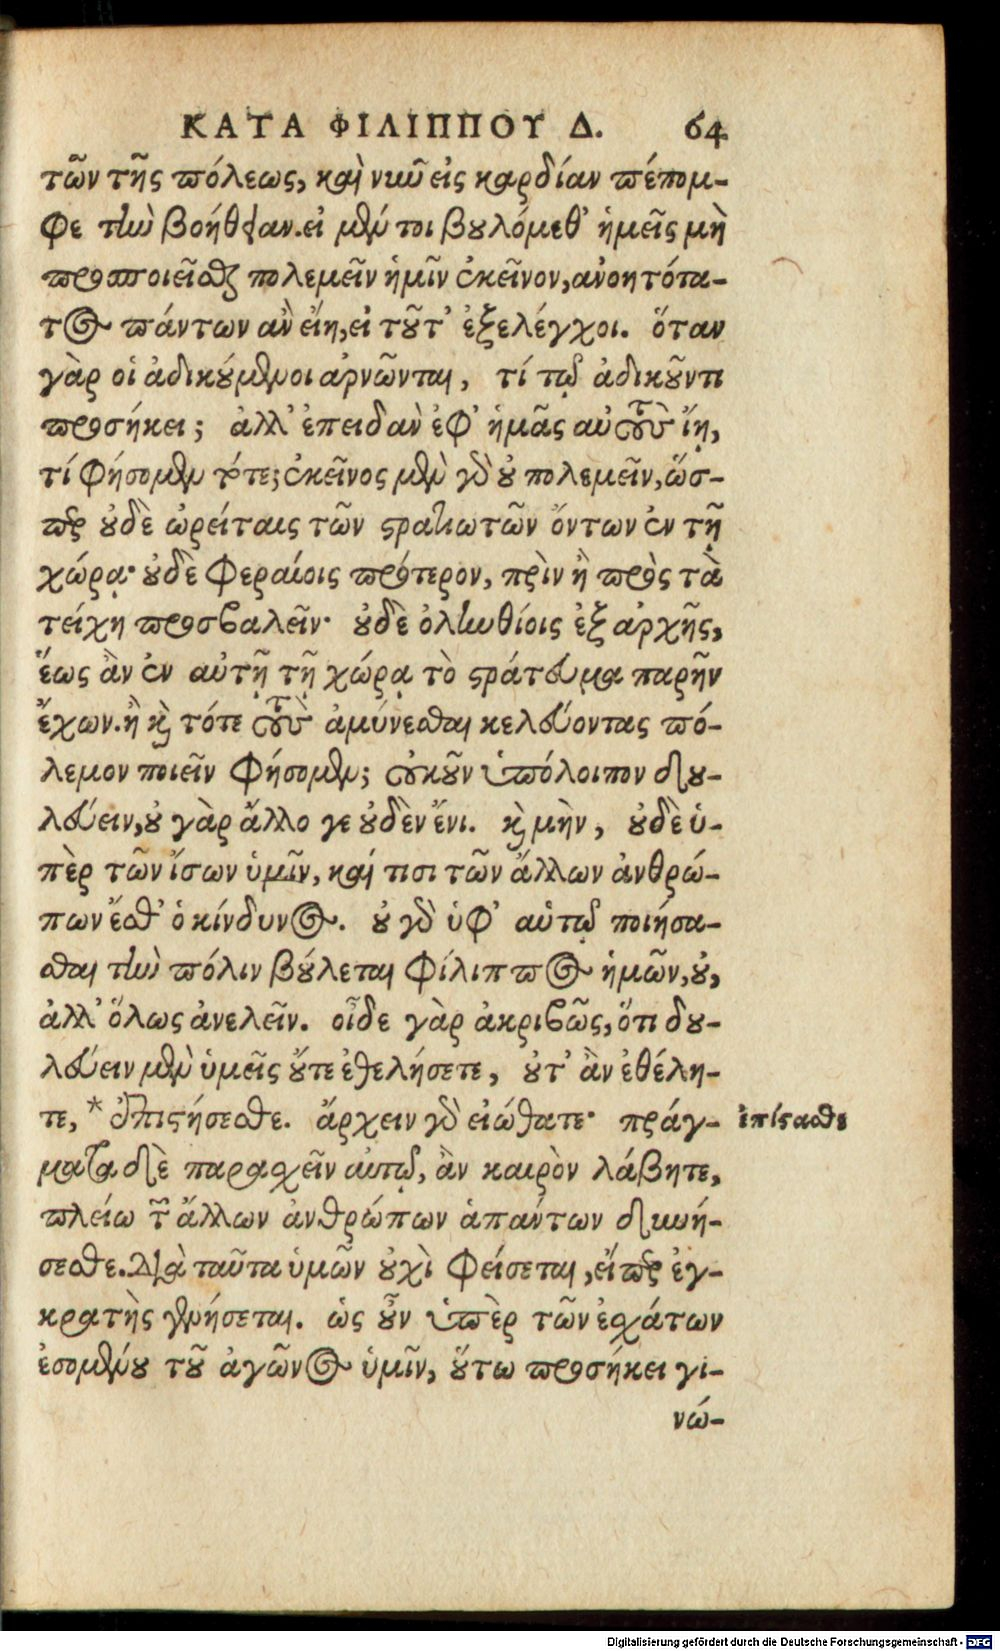 ΚΑΤΑ ΦΙΛΙΠΠΟΥ Δ. 64
τῶν τῆς πόλεως, καὶ νῦν εἰς καρδίαν πέπομ-
φε τὴν βοήθειαν. εἰ μέν τοι βουλόμεθ' ἡμεῖς μὴ
προσποιεῖσθαι πολεμεῖν ἡμῖν ἐκεῖνον, ἀνοητότα-
τος πάντων ἂν εἴη, εἰ τοῦτ' ἐξελέγχοι. ὅταν
γὰρ οἱ ἀδικούμενοι ἀρνῶνται, τί τῷ ἀδικοῦντι
προσήκει; ἀλλ' ἐπειδὰν ἐφ' ἡμᾶς αὐτοὺς ἴῃ,
τί φήσομεν τότε; ἐκεῖνος μὲν γὰρ οὐ πολεμεῖν, ὥσ-
περ οὐδὲ ὠρείταις τῶν στρατιωτῶν ὄντων ἐν τῇ
χώρᾳ· οὐδὲ Φεραίοις πρότερον, πρὶν ἢ πρὸς τὰ
τείχη προσβαλεῖν· οὐδὲ ὀλυνθίοις ἐξ ἀρχῆς,
ἕως ἂν ἐν αὐτῇ τῇ χώρᾳ τὸ στράτευμα παρῆν
ἔχων. ἢ καὶ τότε τοὺς ἀμύνεσθαι κελεύοντας πό-
λεμον ποιεῖν φήσομεν; οὐκοῦν ὑπόλοιπον δου-
λεύειν, οὐ γὰρ ἄλλο γε οὐδὲν ἔνι. καὶ μὴν, οὐδὲ ὑ-
πὲρ τῶν ἴσων ὑμῖν, καί τισι τῶν ἄλλων ἀνθρώ-
πων ἔσθ' ὁ κίνδυνος. οὐ γὰρ ὑφ' αὑτῷ ποιήσα-
σθαι τὴν πόλιν βούλεται Φίλιππος ἡμῶν, οὔ,
ἀλλ' ὅλως ἀνελεῖν. οἶδε γὰρ ἀκριβῶς, ὅτι δου-
λεύειν μὲν ὑμεῖς οὔτε ἐθελήσετε, οὔτ' ἂν ἐθέλη-
τε, * ἐπιστήσεσθε. ἄρχειν γὰρ εἰώθατε· πράγ- ἐπίστασθε
ματα δὲ παρασχεῖν αὐτῷ, ἂν καιρὸν λάβητε,
πλείω τῶν ἄλλων ἀνθρώπων ἁπάντων δυνή-
σεσθε. Διὰ ταῦτα ὑμῶν οὐχὶ φείσεται, εἴπερ ἐγ-
κρατὴς γενήσεται. ὡς οὖν ὑπὲρ τῶν ἐσχάτων
ἐσομένου τοῦ ἀγῶνος ὑμῖν, οὕτω προσήκει γι-
νώ-
Digitalisierung gefördert durch die Deutsche Forschungsgemeinschaft - DFG